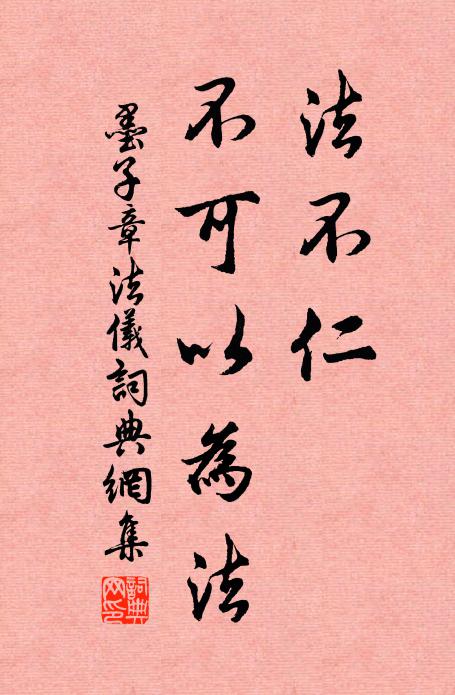 法不仁
不可以為法
墨子章法儀詞典網集
詞典網印